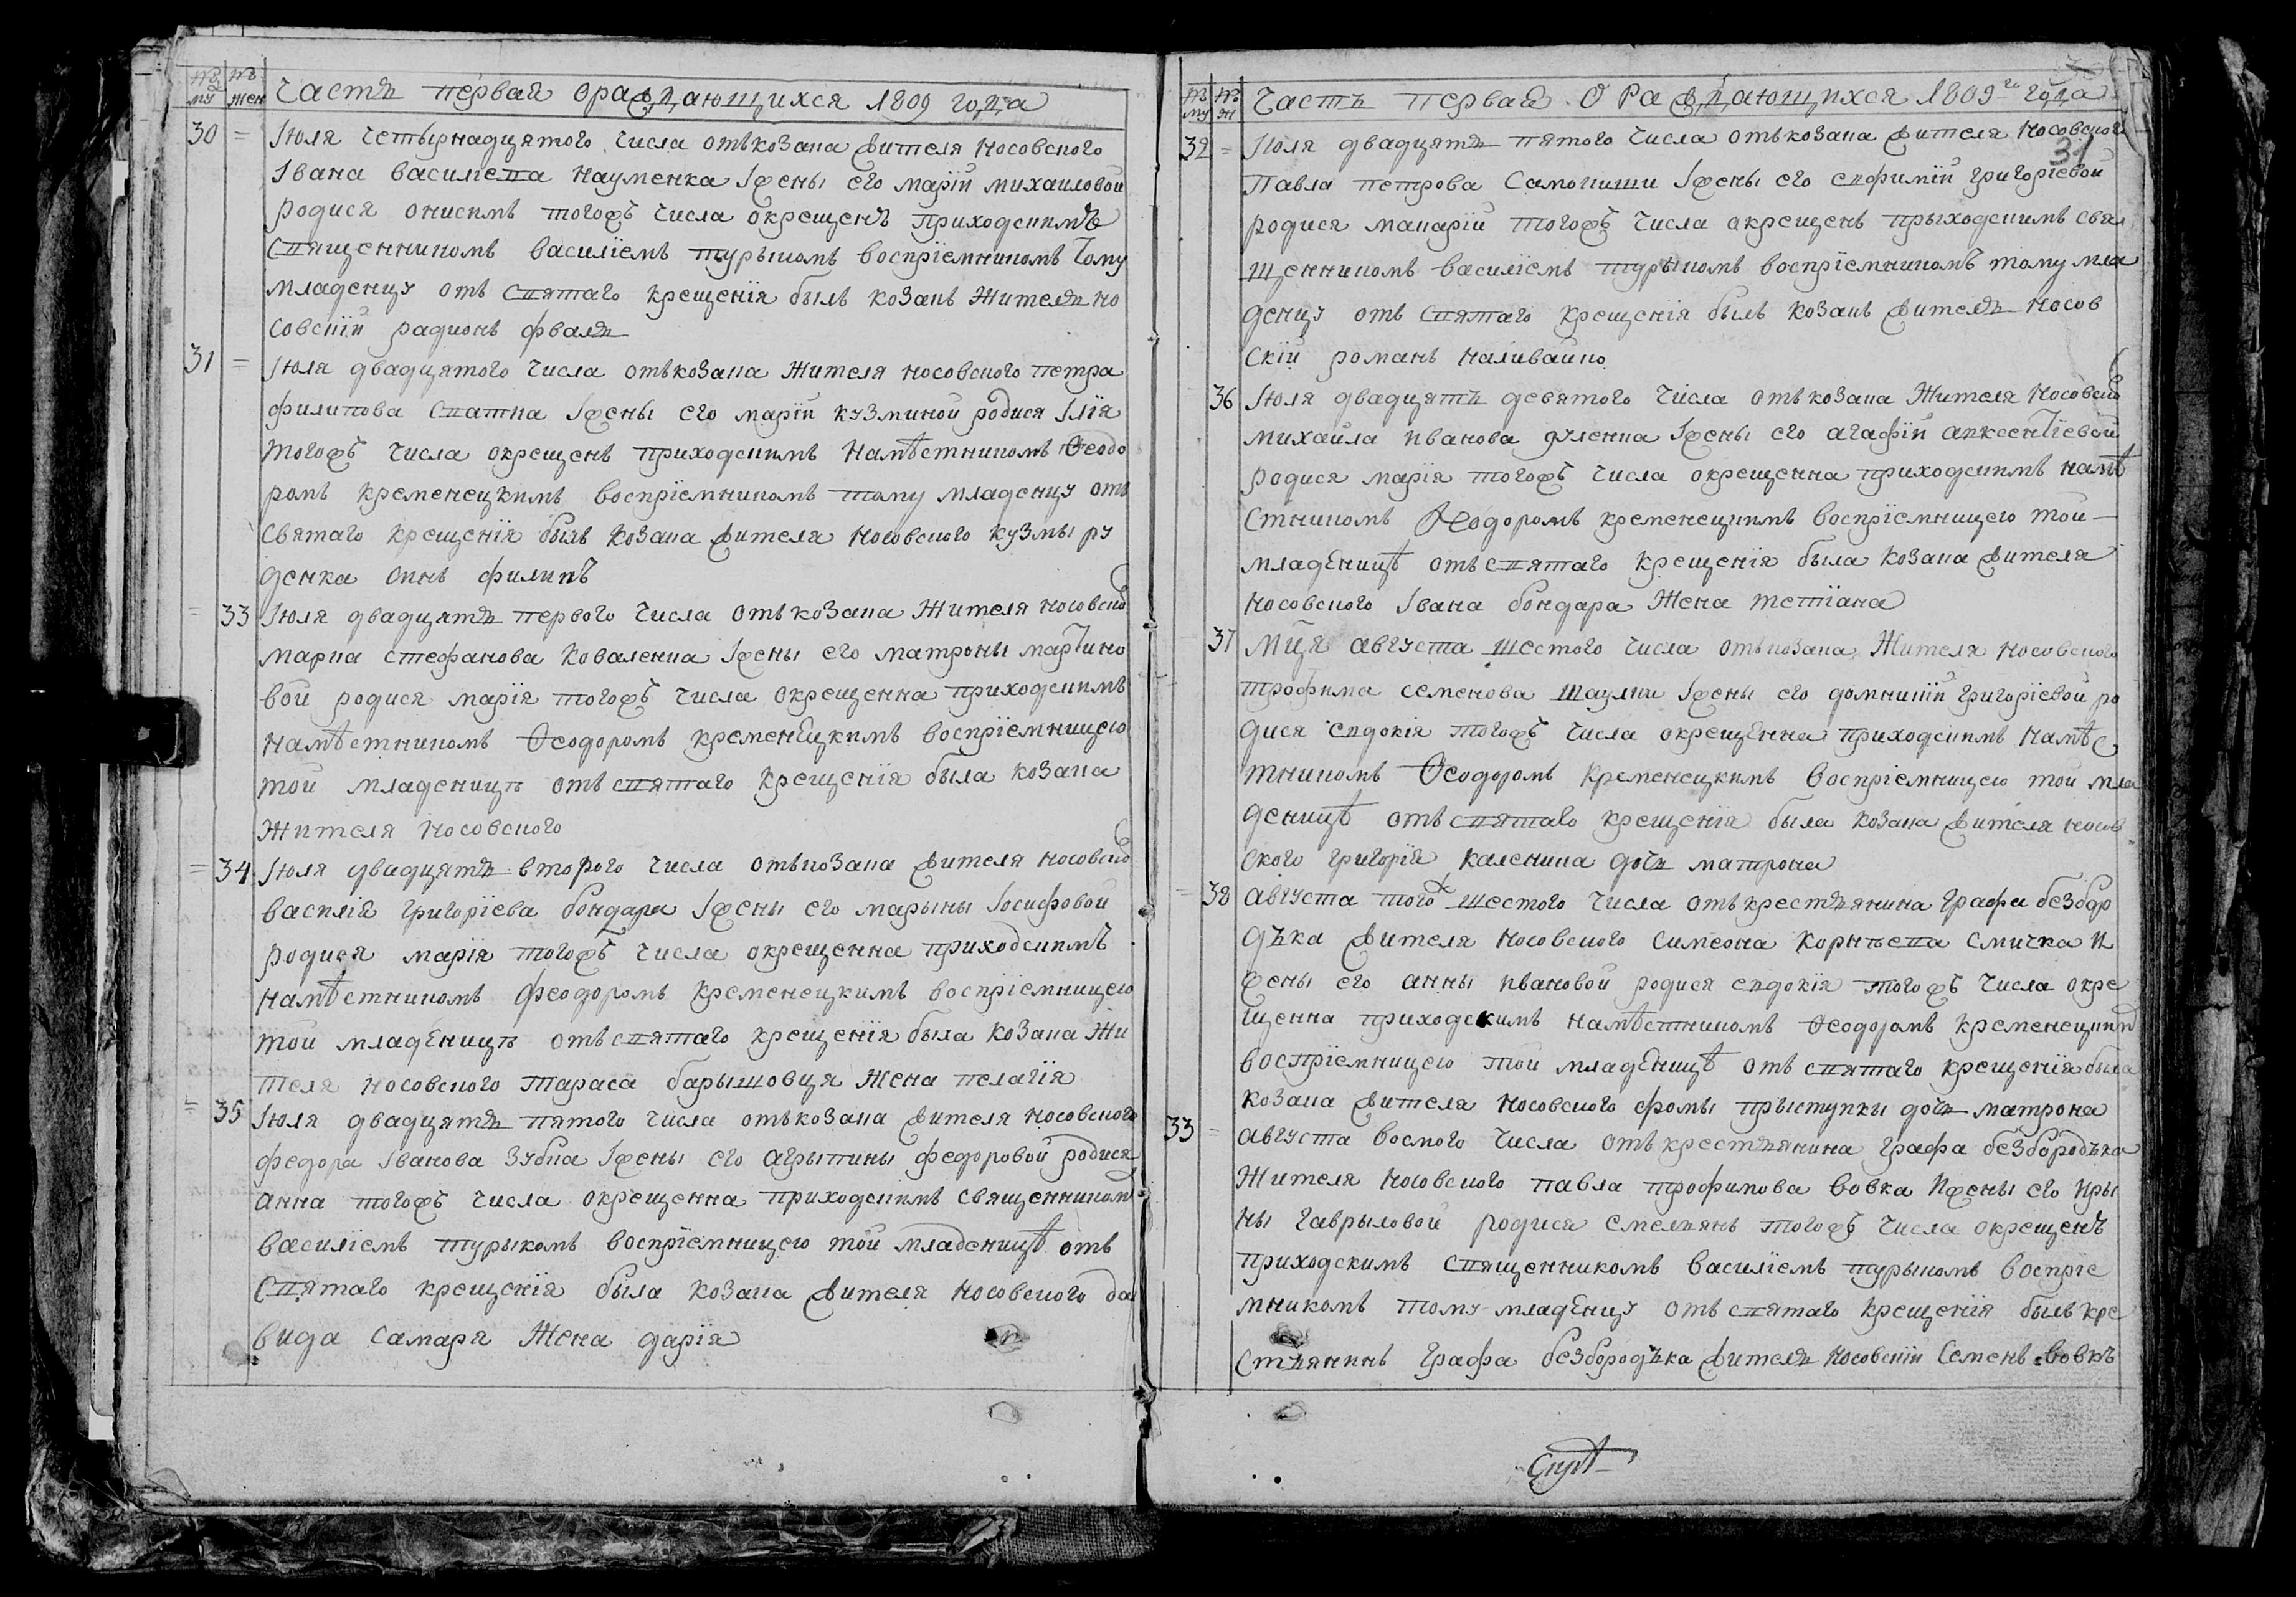 № му № жен Часть первая о раждающихся 1809 года
30 = Іюля четырнадцятого числа отъ козака жителя носовского
Івана василіева науменка іжены его маріи михаиловой
родися онисимъ тогожъ числа окрещенъ приходскимъ
священникомъ василіемъ турыкомъ воспріемникомъ тому
младенцу отъ святаго крещенія былъ козакъ жителъ но
совскій радионъ
31 = Іюля двадцятого числа отъ козака жителя носовского петра
филипова іжены его маріи кузминой родися ілія
тогожъ числа окрещенъ приходскимъ намѣстникомъ Ѳеодо
ромъ кременецкимъ воспріемникомъ тому младенцу отъ
святаго крещенія былъ козака жителя носовского кузмы ру
денка синъ филипъ
= 33 Іюля двадцять первого числа отъ козака жителя носовско
марка стефанова коваленка іжены его матроны мартино
вой родися марія тогожъ числа окрещенна приходскимъ
намѣстникомъ Ѳеодоромъ кременецкимъ воспріемницею
той младеницъ отъ святаго крещенія была козака
жителя носовского
= 34 Іюля двадцять второго числа отъ козака жителя носовско
василія григоріева бондара іжены его марыны іосифовой
родися марія тогожъ числа окрещенна приходскимъ
намѣстникомъ феодоромъ кременецкимъ воспріемницею
той младеницъ отъ святаго крещенія была козака жи
теля носовского тараса барышовця жена пелагія
= 35 Іюля двадцять пятого числа отъ козака жителя носовского
федора іванова зубка іжены его агрыпины федоровой родися
анна тогожъ числа окрещенна приходскимъ священником
василіемъ турыкомъ воспріемницею той младеницѣ отъ
святаго крещенія была козака жителя носовского да
вида самаря жена дарія
№ му № жн Часть первая о раждающихся 1809го года
31
32 = Іюля двадцять пятого числа отъ козака жителя носовского
павла петрова іжены его евфиміи григоріевой
родися макарій тогожъ числа окрещенъ прыходскимъ свя
щенникомъ василіемъ турыкомъ воспріемникомъ тому мла
денцу отъ святаго крещенія былъ козакъ жителъ носов
скій романъ наливайко
36 Іюля двадцять девятого числа отъ козака жителя носовско
михайла иванова іжены его агафіи авксентіевой
родися марія тогожъ числа окрещенна приходскимъ намѣ
стникомъ Ѳеодоромъ кременецкимъ воспріемницею той
младеницѣ отъ святаго крещенія была козака жителя
носовского івана бондара жена тетіана
37 Мця августа шестого числа отъ козака жителя носовского
трофима семенова шаулки іжены его домникіи григоріевой ро
дися евдокія тогожъ числа окрещенна приходскимъ намѣс
тникомъ Ѳеодоромъ кременецкимъ воспріемницею той мла
деницѣ отъ святаго крещенія была козака жителя носов
ского григорія каленика дочь матрона
= 38 августа того ж шестого числа отъ крестьянина графа безбор
дъка жителя носовского симеона корнѣева смичка и
жены его анны ивановой родися евдокія тогожъ числа окре
щенна приходскимъ намѣстникомъ Ѳеодоромъ кременецким
воспріемницею той младеницѣ отъ святаго крещенія была
козака жителя носовского фомы прыступкы дочь матрона
33 = августа восмого числа отъ крестьянина графа безбородъка
жителя носовского павла трофимова вовка ижены его иры
ны гаврыловой родися емелиянъ тогожъ числа окрещенъ
приходскимъ священникомъ василіемъ турыкомъ воспріе
мникомъ тому младенцу отъ святаго крещенія былъ кре
стьянинъ графа безбородъка жителъ носовскій семенъ вовкъ